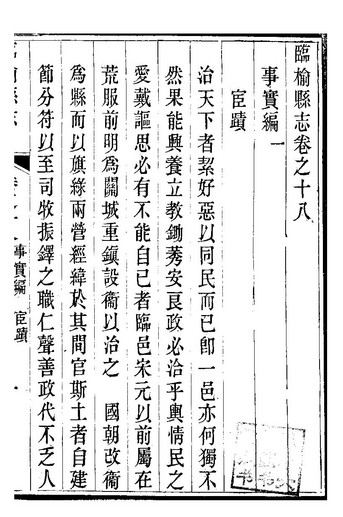 臨榆縣志卷之十八
事實編一
宦蹟
治天下者絜好惡以同民而已卽一邑亦何獨不
然果能興養立教鋤莠安良政必洽乎輿情民之
愛戴謳思必有不能自已者臨邑宋元以前屬在
荒服前明爲關城重鎮設衞以治之 國朝改衞
爲縣而以旗綠兩營經緯於其間官斯土者自建
節分符以至司牧振鐸之職仁聲善政代不乏人
事實編 宦蹟 一